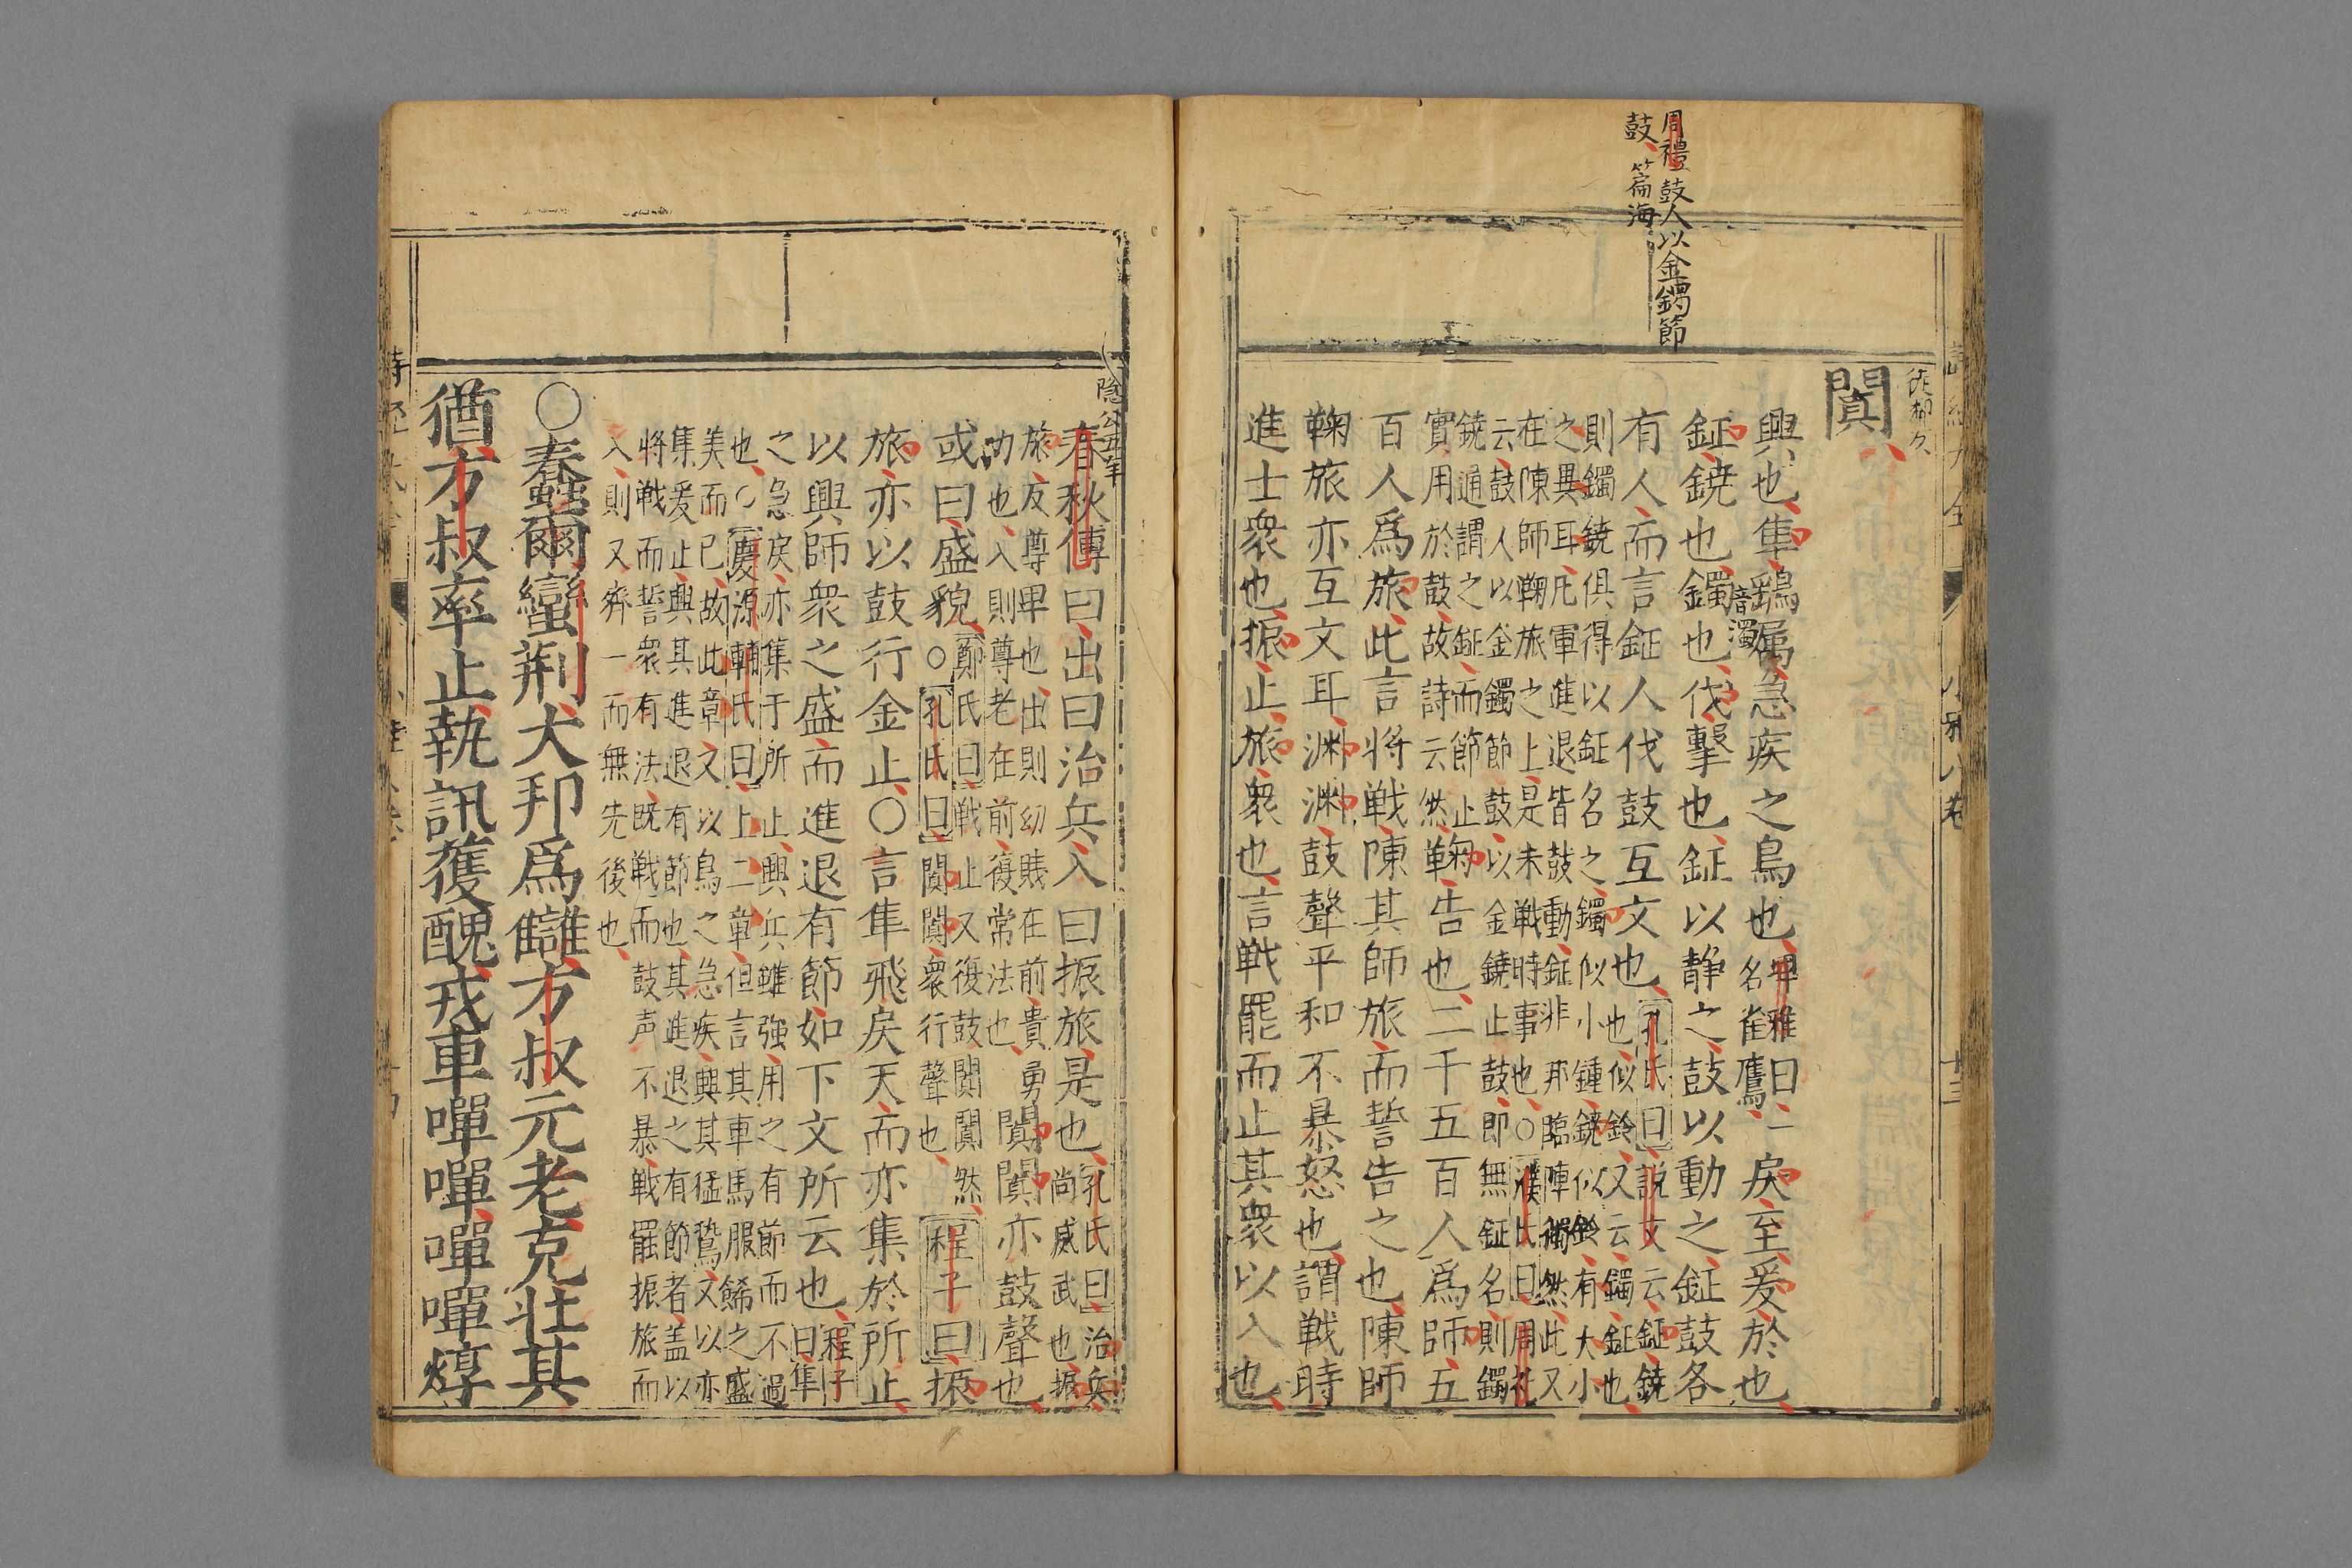 周禮鼓人以金鐲節
鼓、篇海
闐
興也、隼、鷂屬、急疾之鳥也、埤雅曰一名雀鷹、戾、至、爰、於也、
鉦、鐃也、鐲也、伐、擊也、鉦以静之、鼓以動之、鉦鼓各
音濁
有人、而言鉦人伐鼓互文也、孔氏曰説文云鉦鐃
也似鈴、又云鐲、鉦也、
則鐲鐃俱得以鉦名之、鐲似小鍾、鐃似鈴、有大小
之異耳、凡軍進退皆鼓動鉦非那臨陣獨然、此又
在陳師鞠旅之上、是未戦時事也、○濮氏曰周礼
云鼓人以金鐲節鼓以金鐃止鼓、即無鉦名、則鐲
鐃通謂之鉦、而節止
實用於鼓、故詩云然、鞠、告也、二千五百人爲師、五
百人爲旅、此言將戦陳其師旅、而誓告之也、陳師
鞠旅亦互文耳、渊渊、鼓聲平和不暴怒也、謂戦時
進士衆也、振、止、旅、衆也、言戦罷而止其衆以入也、
隠公五年
春秋傳曰、出曰治兵、入曰振旅、是也、孔氏曰、治兵
尚威武也、振
旅、反尊卑也、出則幼賎在前、貴勇
力也、入則尊老在前、復常法也、闐闐亦鼓聲也、
或曰、盛貌、鄭氏曰、戦止又復鼓闐闐然、
○孔氏曰、闐闐、衆行聲也、程子曰、振
旅、亦以鼓行金止、○言隼飛戾天、而亦集於所止、
以興師衆之盛、而進退有節、如下文所云也、程子
曰、隼
之急戾、亦集于所止、興兵雖强、用之有節而不過
也、○慶源輔氏曰、上二章、但言其車馬服餙之盛
美而已、故此章、又以鳥之急疾、興其猛鷙、又以亦
集爰止、興其進退有節也、其進退之有節者、盖以
將戦而誓衆有法、既戦而鼓声不暴、戦罷振旅而
入、則又齊一而無先後也、
○蠢爾蠻荆、大邦爲讎、方叔元老、克壮其
猶、方叔率止、執訊獲醜、戎車嘽嘽、嘽嘽焞